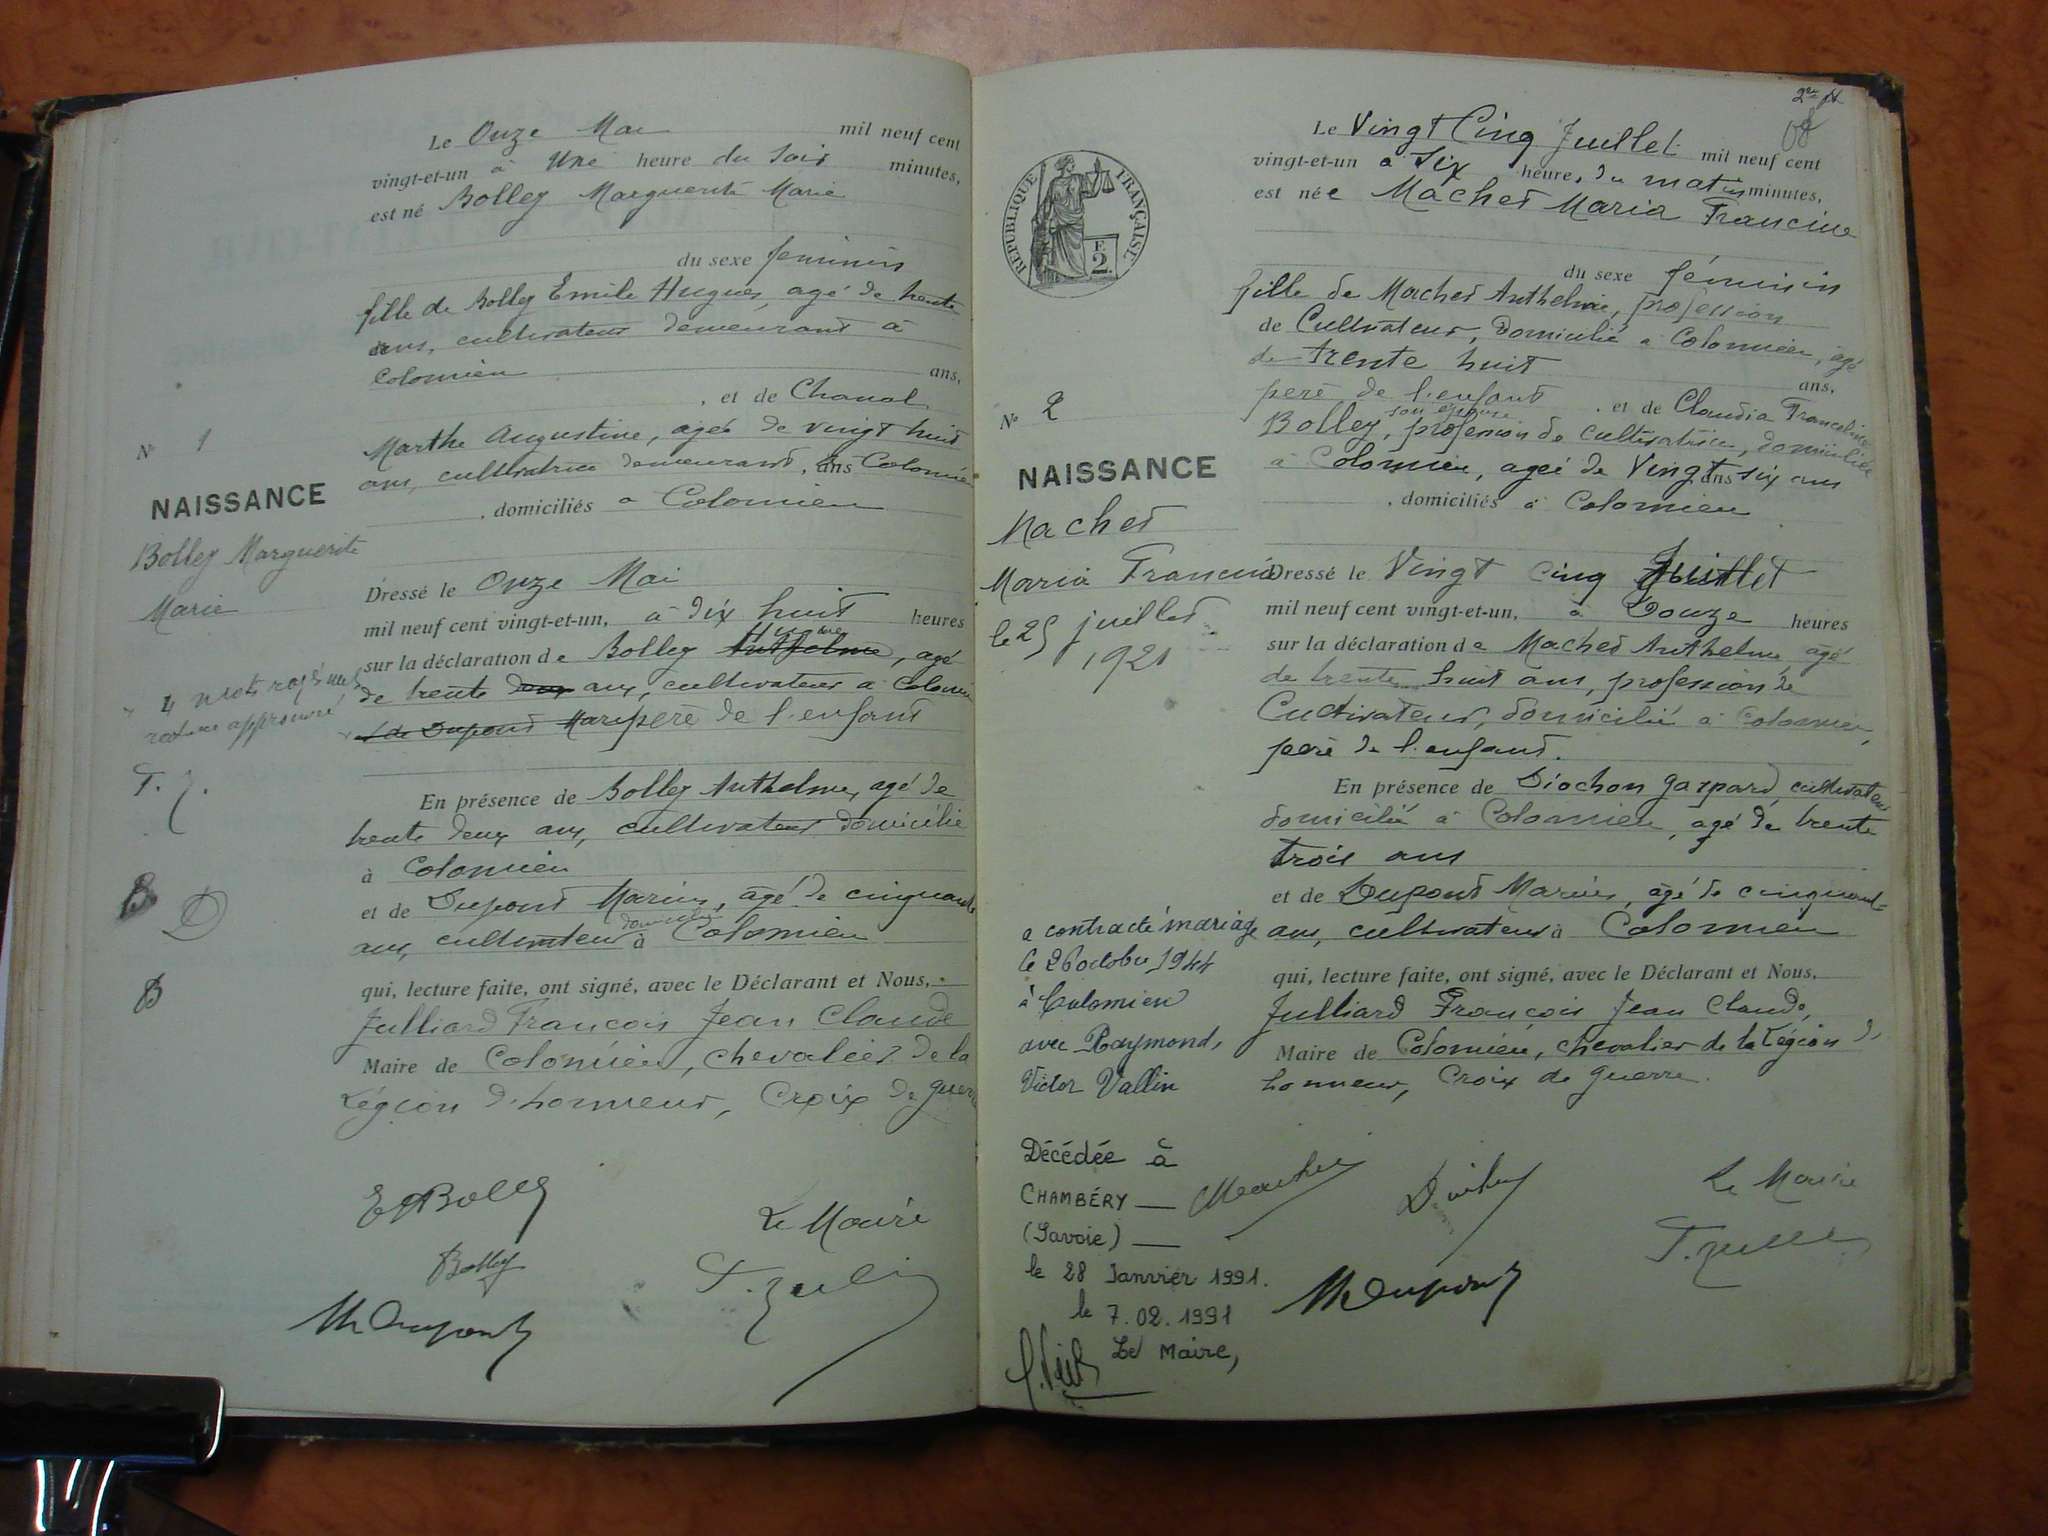 Le Onze Mai mil neuf cent
vingt-et-un à Une heure du soir minutes,
est né Bolley Marguerite Marie
du sexe féminin
fille de Bolley Emile Hugues, agé de trente
ans, cultivateur demeurant à
Colomieu ans,
, et de Chanal
Marthe Augustine, agée de vingt huit
ans, cultivatrice demeurant, ans Colomieu
, domiciliés à Colomieu
N° 1
NAISSANCE
Bolley Marguerite
Marie
Dressé le Onze Mai
mil neuf cent vingt-et-un, à dix huit heures
sur la déclaration de Bolley Anthelme, agé
de trente deux ans, cultivateur à Colomieu
et de Dupont Mari père de l'enfant
4 mots rayés nuls
approuvé
En présence de Bolley Anthelme, agé de
trente deux ans, cultivateur domicilié
à Colomieu
et de Dupont Marius, agé de cinquante
ans, cultivateur domicilié à Colomieu
qui, lecture faite, ont signé, avec le Déclarant et Nous,
Julliard François Jean Claude
Maire de Colomieu, chevalier de la
Légion d'honneur, Croix de guerre
B
D
B
E Bolley
Bolley
M Dupont
Le Maire
2
RÉPUBLIQUE FRANÇAISE
F.
2.
Le Vingt Cinq Juillet mil neuf cent
vingt-et-un à Six heures du matin minutes,
est née Machet Maria Francine
du sexe féminin
fille de Machet Anthelme, profession
de Cultivateur, domicilié à Colomieu, agé
de trente huit ans,
père de l'enfant , et de Claudia Franceline
Bolley, son épouse profession de cultivatrice, domiciliée
à Colomieu, ageé de Vingt ans six ans
, domiciliés à Colomieu
N° 2
NAISSANCE
Machet
Maria Francine
le 25 juillet
1921
Dressé le Vingt cinq Juillet
mil neuf cent vingt-et-un, à Douze heures
sur la déclaration de Machet Anthelme agé
de trente huit ans, profession de
Cultivateur, domicilié à Colomieu,
père de l'enfant.
En présence de Diochon Gaspard cultivateur
domicilié à Colomieu, agé de trente
trois ans
et de Dupont Marius, agé de cinquante
ans, cultivateur à Colomieu
qui, lecture faite, ont signé, avec le Déclarant et Nous,
Julliard François Jean Claude,
Maire de Colomieu, chevalier de la Légion d'
honneur, Croix de guerre.
a contracté mariage
le 26 octobre 1944
à Colomieu
avec Raymond,
Victor Vallin
Décédée à
CHAMBÉRY
(Savoie)
le 28 Janvier 1991.
le 7.02.1991
Le Maire,
Machet
M Dupont
Le Maire